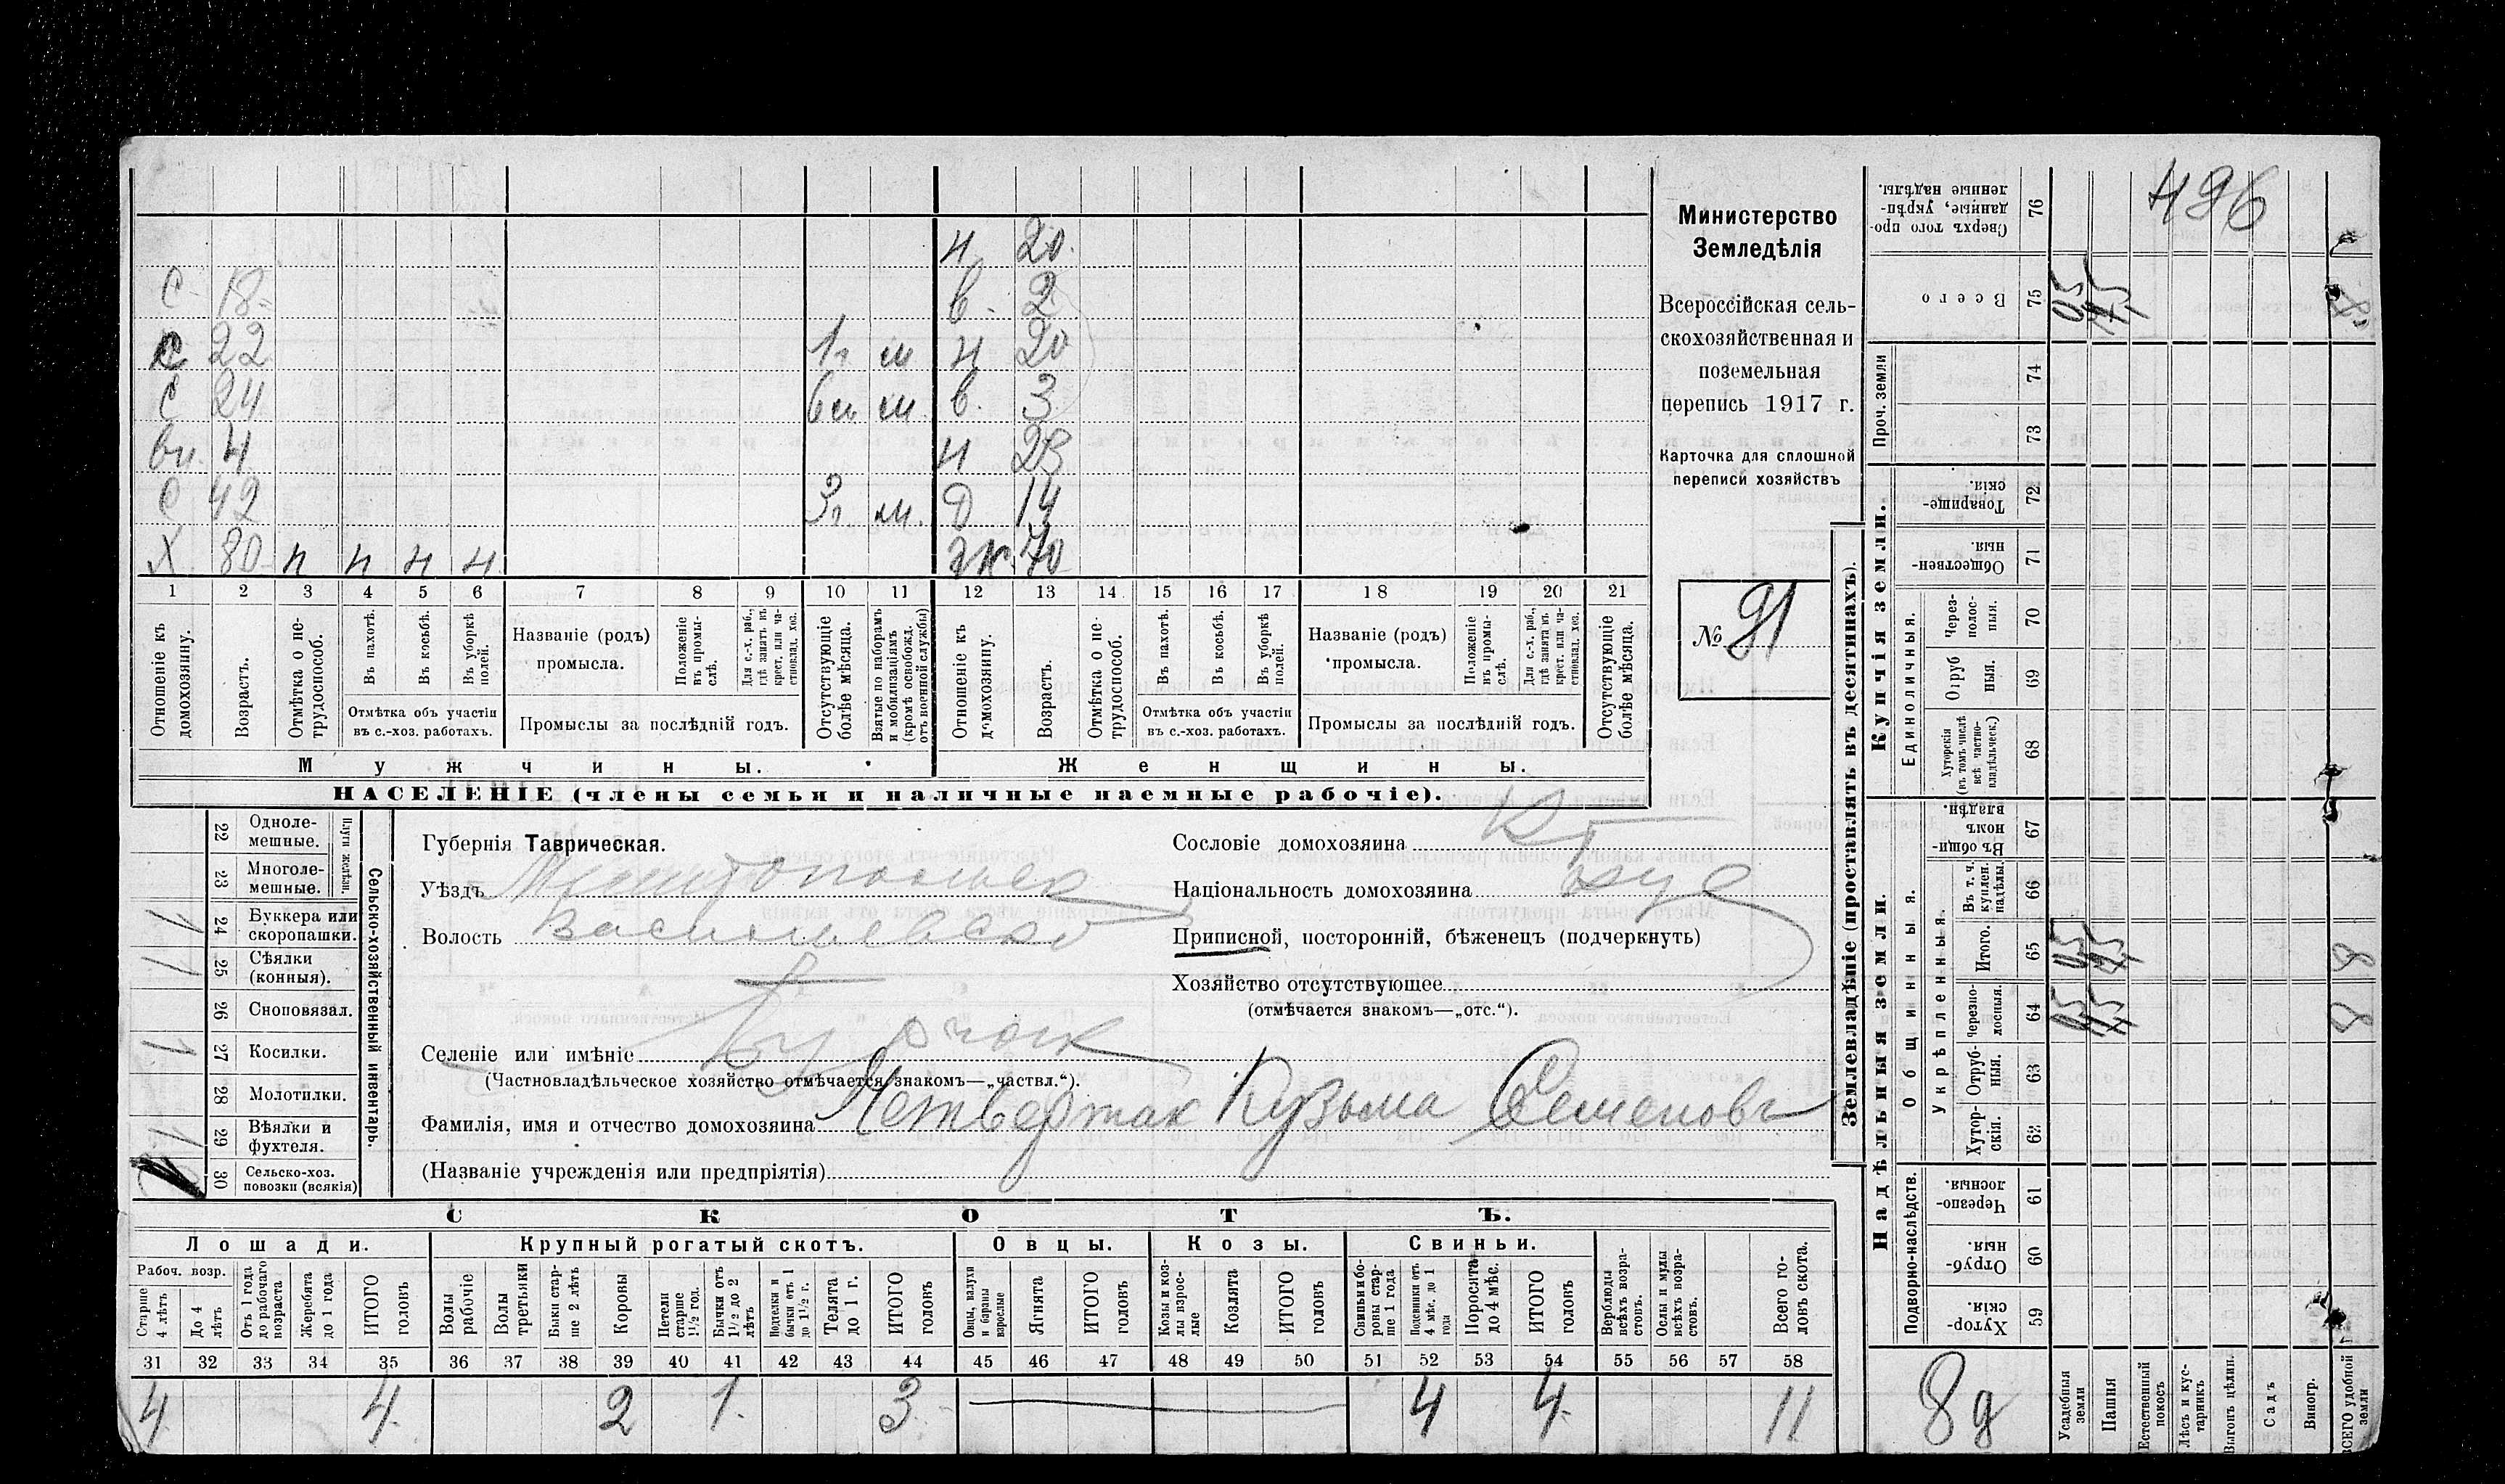 н 20.
с 18 в. 2
с 22 1г м н 20
с 24 6м м. в. 3
вн. 4 н 23
с 42 3г м. д 14
Х 80 н н н н. ж. 70
1 2 3 4 5 6 7 8 9 10 11 12 13 14 15 16 17 18 19 20 21
Отношеніе къ домохозяину.
Возрастъ.
Отмѣтка о нетрудоспособ.
Въ пахотѣ.
Въ косьбѣ.
Въ уборкѣ полей.
Отмѣтка объ участіи
въ с.-хоз. работахъ.
Названіе (родъ)
промысла.
Положеніе въ промыслѣ.
Для с.-х. раб., гдѣ занятъ въ крест. или частновлад. хоз.
Промыслы за послѣдній годъ.
Отсутствующіе болѣе мѣсяца.
Взятые по наборамъ и мобилизаціямъ (кромѣ освобожд. отъ военной службы)
Отношеніе къ домохозяину.
Возрастъ.
Отмѣтка о нетрудоспособ.
Въ пахотѣ.
Въ косьбѣ.
Въ уборкѣ полей.
Отмѣтка объ участіи
въ с.-хоз. работахъ.
Названіе (родъ)
промысла.
Положеніе въ промыслѣ.
Для с.-х. раб., гдѣ занята въ крест. или частновлад. хоз.
Промыслы за послѣдній годъ.
Отсутствующіе болѣе мѣсяца.
Мужчины.
Женщины.
НАСЕЛЕНІЕ (члены семьи и наличные наемные рабочіе).
Министерство
Земледѣлія
Всероссійская сель-
скохозяйственная и
поземельная
перепись 1917 г.
Карточка для сплошной
переписи хозяйствъ
№ 91
Плуги желѣзн.
22 Одноле-
мешные.
23 Многоле-
мешные.
1 24 Буккера или
скоропашки.
1 25 Сѣялки
(конныя).
26 Сноповязал.
1. 27 Косилки.
28 Молотилки.
1 29 Вѣялки и
фухтеля.
30 Сельско-хоз.
повозки (всякія)
Сельско-хозяйственный инвентарь.
Губернія Таврическая.
Уѣздъ Мелитопольск
Волость Васильевско
Селеніе или имѣніе Бурчак
(Частновладѣльческое хозяйство отмѣчается знакомъ—„частвл.“).
Фамилія, имя и отчество домохозяина Четвертак Кузьма Семеновъ
(Названіе учрежденія или предпріятія)
Сословіе домохозяина Кр
Національность домохозяина Рус
Приписной, посторонній, бѣженецъ (подчеркнуть)
Хозяйство отсутствующее
(отмѣчается знакомъ—„отс.“).
СКОТЪ.
Лошади. Крупный рогатый скотъ. Овцы. Козы. Свиньи.
Рабоч. возр.
Старше 4 лѣтъ
До 4 лѣтъ
Отъ 1 года до рабочаго возраста
Жеребята до 1 года
ИТОГО головъ
Волы рабочіе
Волы третьяки
Быки старше 2 лѣтъ
Коровы
Нетели старше 1½ год.
Бычки отъ 1½ до 2 лѣтъ
Подтелки и бычки отъ 1 до 1½ г.
Телята до 1 г.
ИТОГО головъ
Овцы, валухи и бараны взрослые
Ягнята
ИТОГО головъ
Козы и козлы взрослые
Козлята
ИТОГО головъ
Свиньи и боровы старше 1 года
Подсвинки отъ 4 мѣс. до 1 года
Поросята до 4 мѣс.
ИТОГО головъ
Верблюды всѣхъ возрастовъ.
Ослы и мулы всѣхъ возрастовъ.
Всего головъ скота.
31 32 33 34 35 36 37 38 39 40 41 42 43 44 45 46 47 48 49 50 51 52 53 54 55 56 57 58
4 4. 2 1. 3 4 4. 11
Землевладѣніе (проставлять въ десятинахъ).
Купчія земли.
Надѣльныя земли.
Сверхъ того проданные, укрѣпленные надѣлы. 76
496
Всего 75 8.
Проч. земли 74
73
Товарищескія. 72
Общественныя. 71
Единоличныя.
Черезполосныя. 70
Отрубныя. 69
Хуторскія (въ томъ числѣ всѣ частновладѣльческ.) 68
Общинныя.
Въ общинномъ владѣн. 67
Укрѣпленныя.
Въ т. ч. куплен. надѣлы. 66
Итого. 65 8
Черезполосныя. 64 8
Отрубныя. 63
Хуторскія. 62
Подворно-наслѣдств.
Черезполосныя. 61
Отрубныя. 60
Хуторскія. 59
8 д
Усадебныя земли
Пашня
Естественный покосъ
Лѣсъ и кустарникъ
Выгонъ цѣлин.
Садъ
Виногр.
ВСЕГО удобной земли